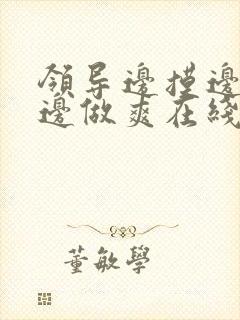 领导邊摸邊
邊做爽在綫
董敏學